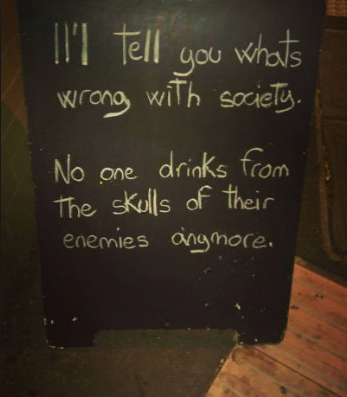 I'll tell you whats
wrong with society.
No one drinks from
the skulls of their
enemies anymore.